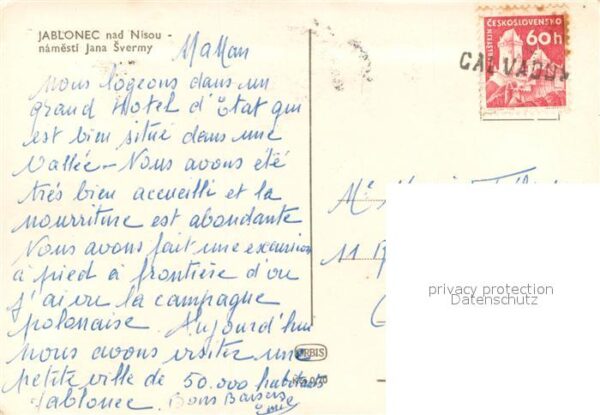 JABLONEC nad Nisou -
náměstí Jana Švermy
Maman
nous logeons dans un
grand Hotel d'Etat qui
est bien situé dans une
Vallée - Nous avons été
très bien accueilli et la
nourriture est abondante
Nous avons fait une excursion
à pied à frontière d'ou
j'ai vu la campagne
polonaise. Aujourd'hui
nous avons visiter une
petite ville de 50.000 habitants
Jablonec. Bons Baisers
ČESKOSLOVENSKO
60h
BEZDĚZ
CALVADOS
Me
11
ORBIS
privacy protection
Datenschutz